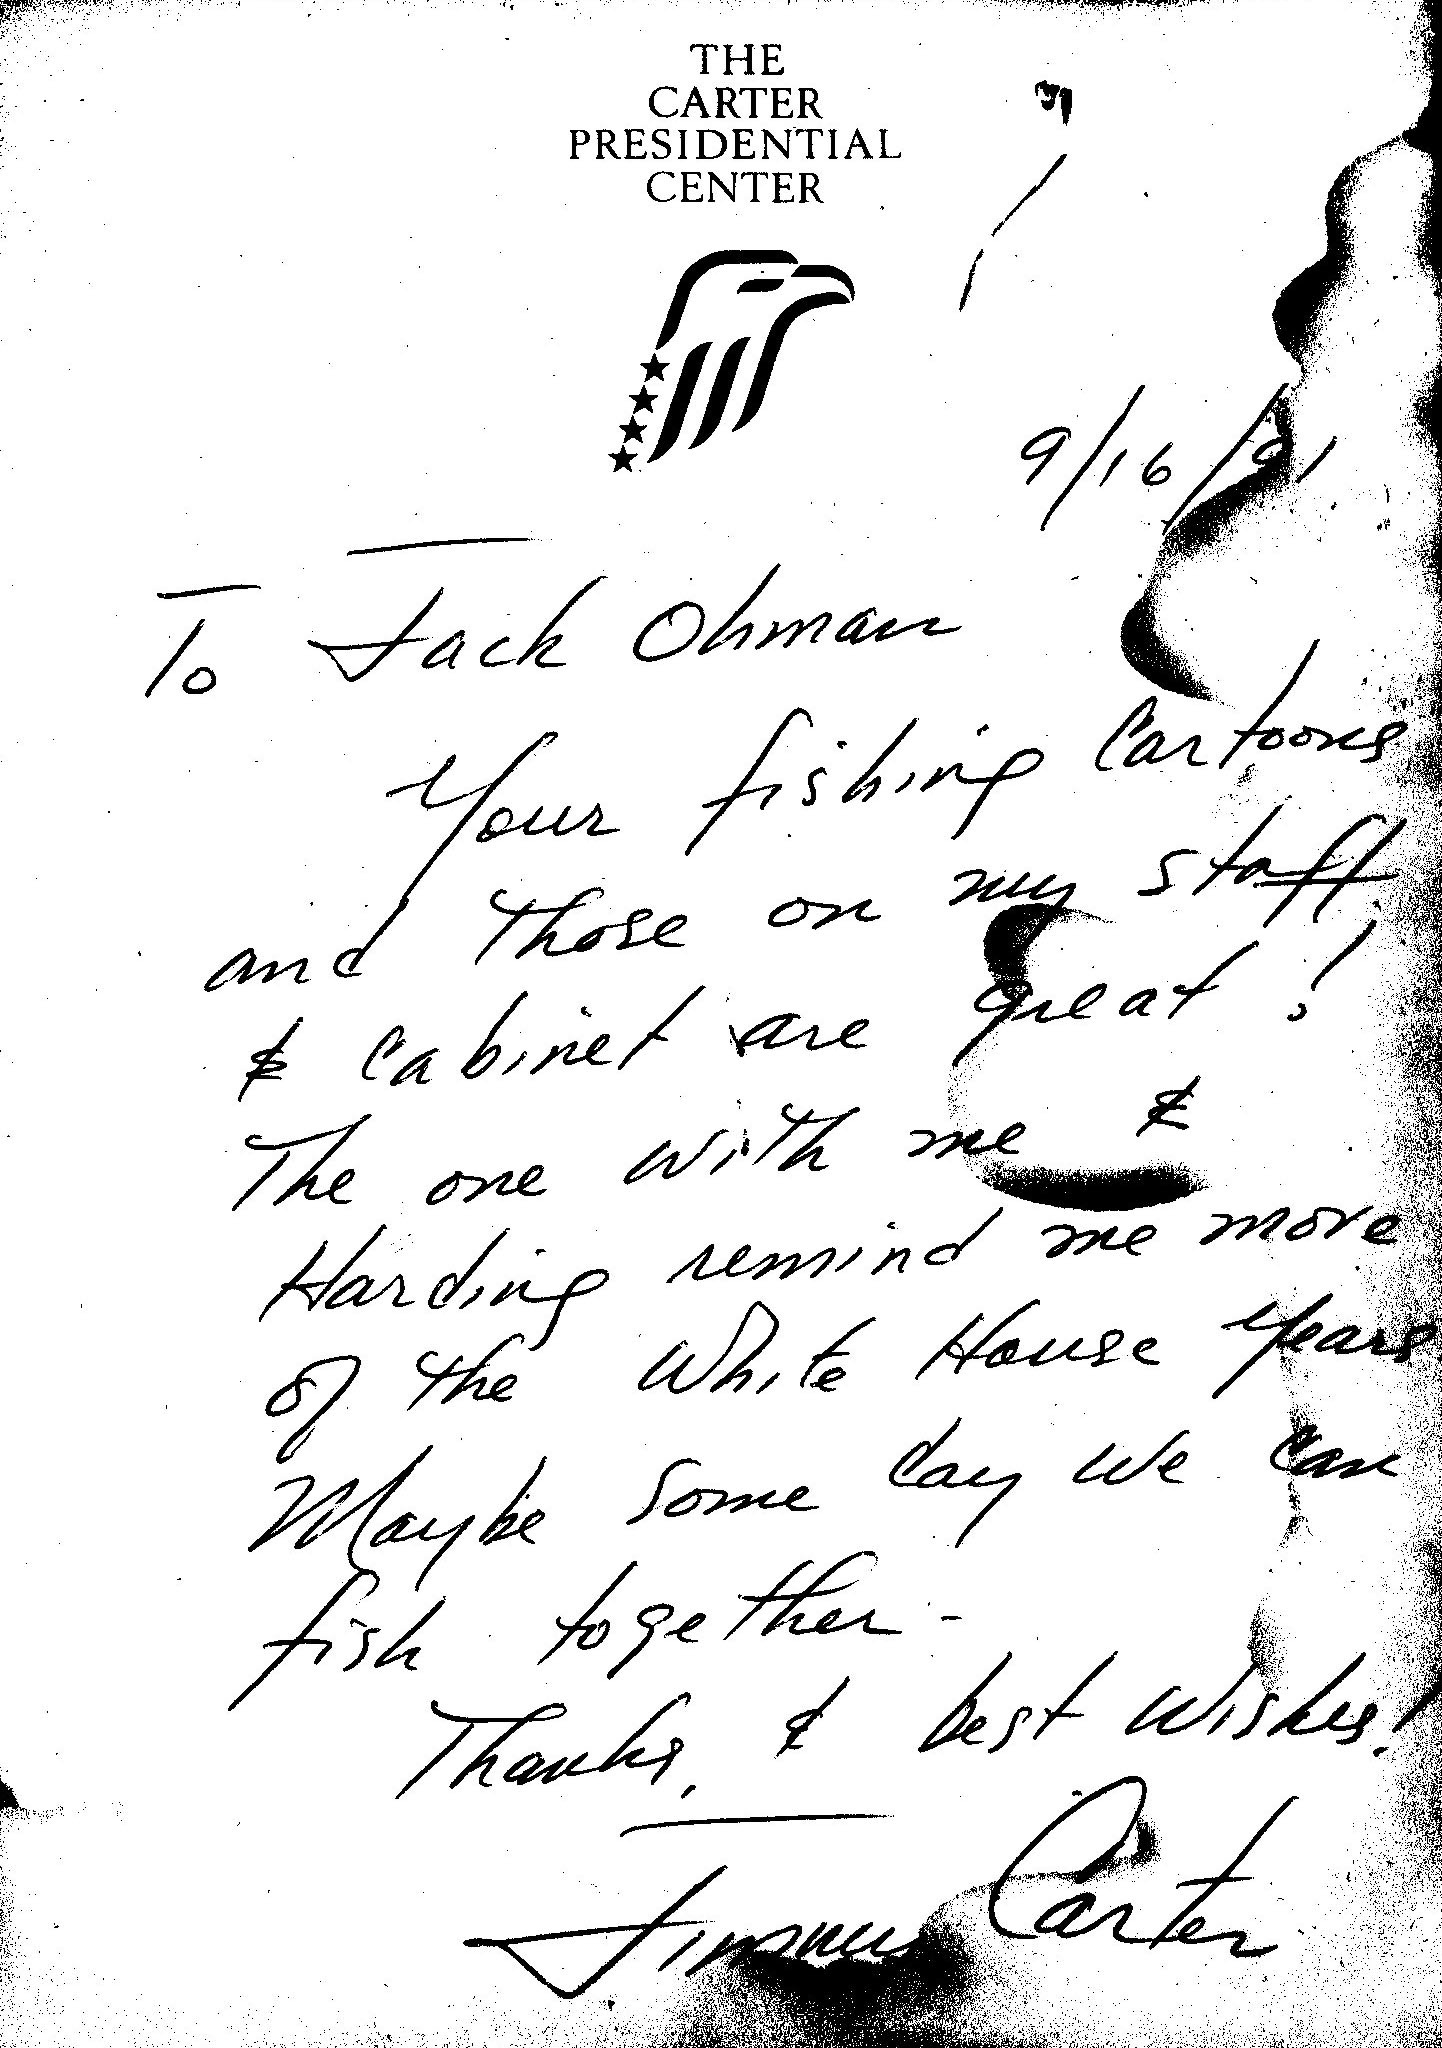 THE
CARTER
PRESIDENTIAL
CENTER
9/16/91
To Jack Ohman
Your fishing cartoons
and those on my staff
& cabinet are great!
The one with me &
Harding remind me more
of the White House years
Maybe some day we can
fish together -
Thanks, & best wishes!
Jimmy Carter